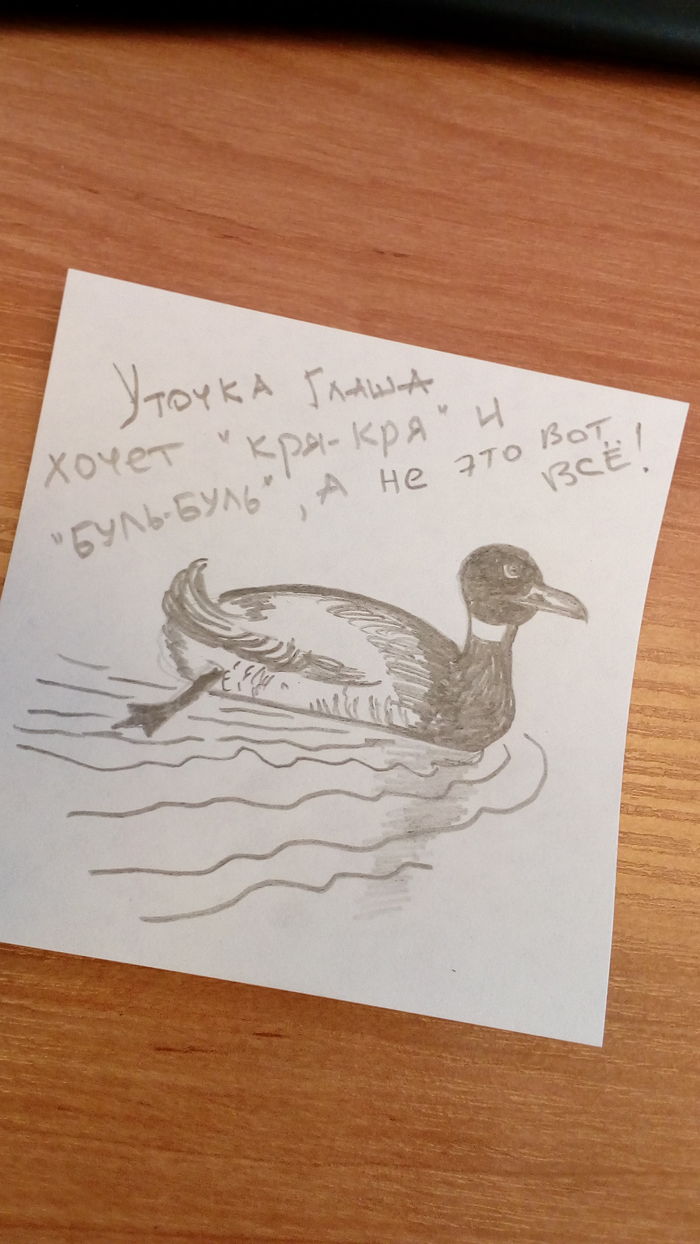 Уточка Глаша
хочет "кря-кря" и
"буль-буль", а не это вот всё!